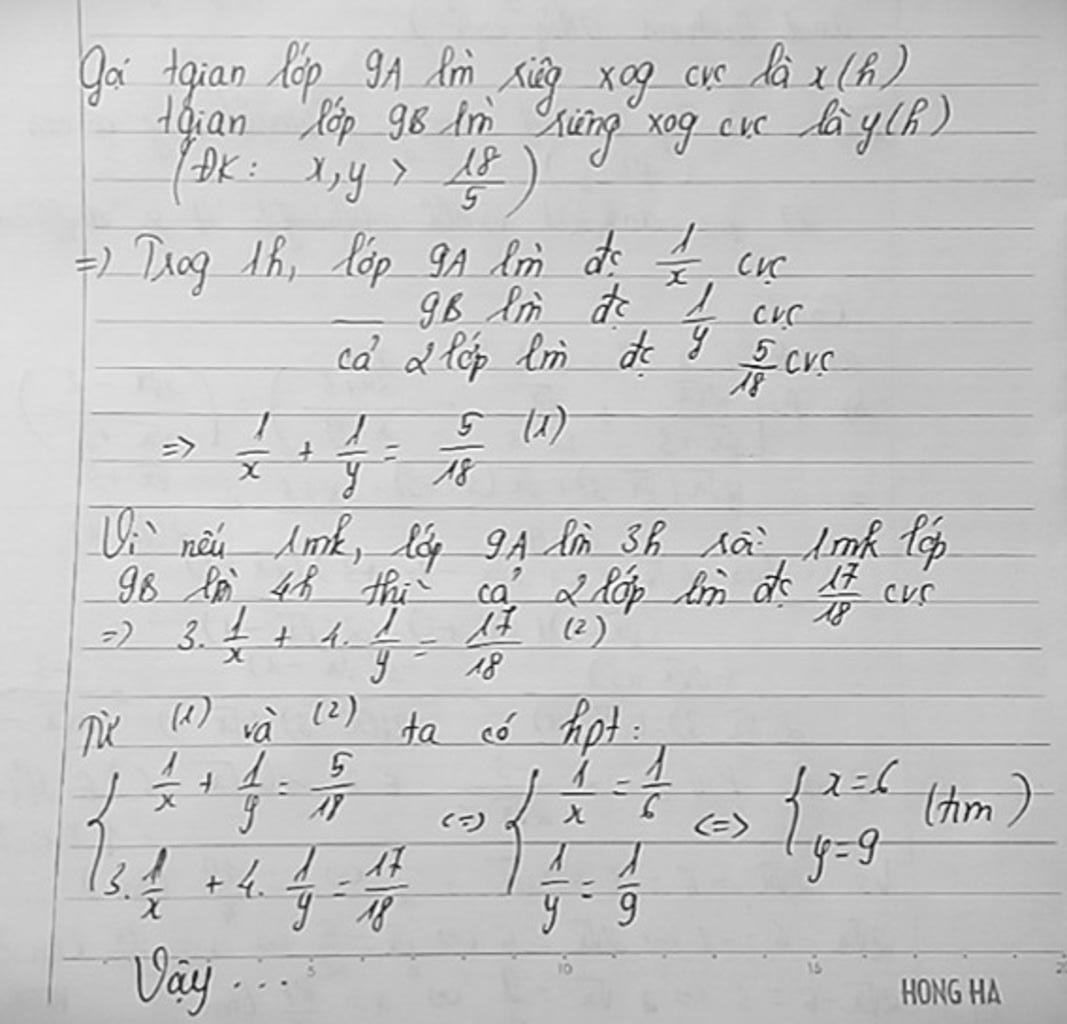 Gọi tgian lớp 9A lm̀ riêg xog cvc là x(h)
tgian lớp 9B lm̀ riêng xog cvc là y(h)
(ĐK: x, y > 18/5)
=> Trog 1h, lớp 9A lm̀ đc 1/x cvc
__ 9B lm̀ đc 1/y cvc
cả 2 lớp lm̀ đc 5/18 cvc
=> 1/x + 1/y = 5/18 (1)
Vì nếu 1mk, lớp 9A lm̀ 3h rồi 1mk lớp
9B lm̀ 4h thì cả 2 lớp lm̀ đc 17/18 cvc
=> 3. 1/x + 4. 1/y = 17/18 (2)
Từ (1) và (2) ta có hpt:
{ 1/x + 1/y = 5/18 <=> { 1/x = 1/6 <=> { x = 6 (tm)
3. 1/x + 4. 1/y = 17/18 1/y = 1/9 y = 9
Vậy ...
5 10 15
HONG HA